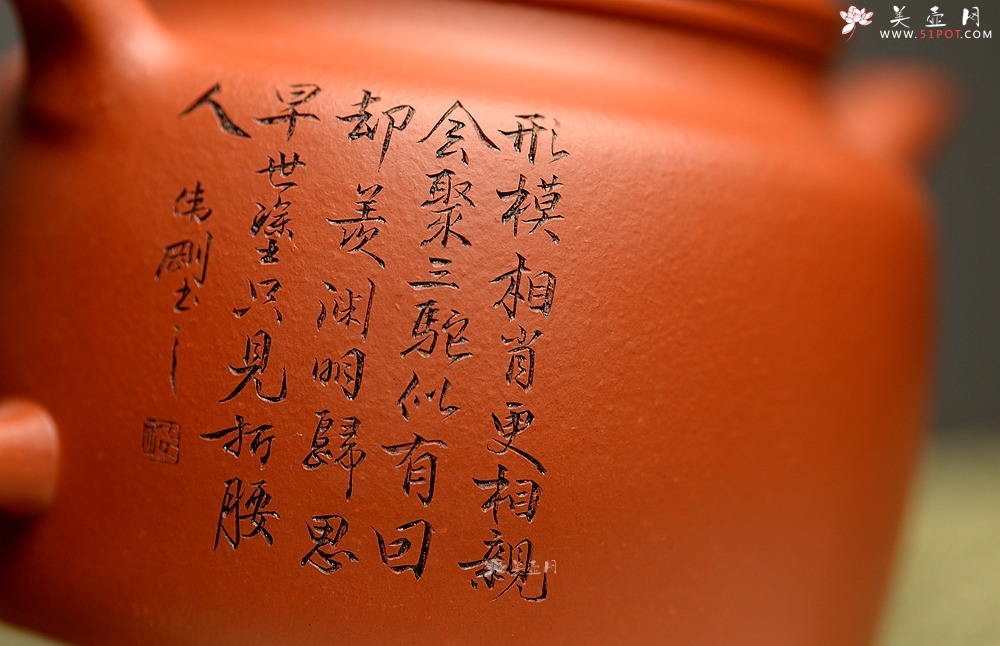 美壶网
WWW.51POT.COM
形模相肖更相親
会聚三駝似有囙
却羡渊明歸思
早世塗只見折腰
人
伟剛书之
美壶网